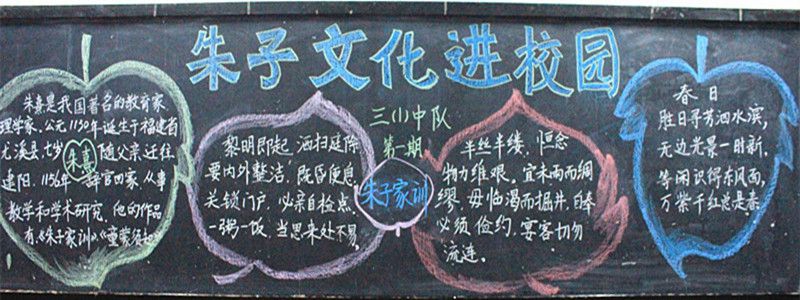 朱子文化进校园
三(1)中队
第一期
朱熹是我国著名的教育家
理学家。公元1130年诞生于福建省
尤溪县,七岁 朱熹 随父亲迁往
建阳。1156年 辞官回家,从事
教学和学术研究,他的作品
有《朱子家训》《童蒙须知》
黎明即起,洒扫庭除
要内外整洁,既昏便息
关锁门户,必亲自检点。
一粥一饭,当思来处不易。
朱子家训
半丝半缕,恒念
物力维艰。宜未雨而绸
缪,毋临渴而掘井,自奉
必须俭约,宴客切勿
流连。
春日
胜日寻芳泗水滨,
无边光景一时新,
等闲识得东风面,
万紫千红总是春。